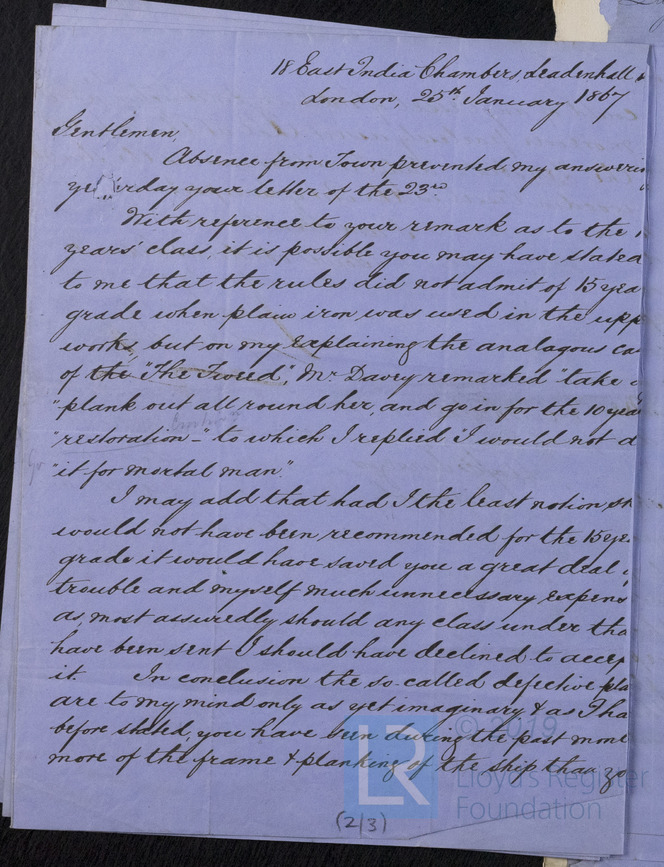 18 East India Chambers, Leadenhall
London, 25th January 1867
Gentlemen,
Absence from Town prevented my answerin
ye rday your letter of the 23rd
With reference to your remark as to the 1
years' class, it is possible you may have stated
to me that the rules did not admit of 15 yea
grade when plain iron was used in the upp
works, but on my explaining the analagous ca
of the "The Tweed", Mr. Davey remarked "take
"plank out all round her, and go in for the 10 yea
"restoration-" to which I replied "I would not d
"it for mortal man."
I may add that had I the least notion sh
would not have been recommended for the 15 ye
grade it would have saved you a great deal
trouble and myself much unnecessary expens
as, most assuredly should any class under tha
have been sent I should have declined to accep
it. In conclusion the so-called defective pla
are to my mind only as yet imaginary & as I ha
before stated, you have been during the past mon
more of the frame & planking of the ship than yo
(2/3)
LR
© 2019
Lloyd's Register
Foundation